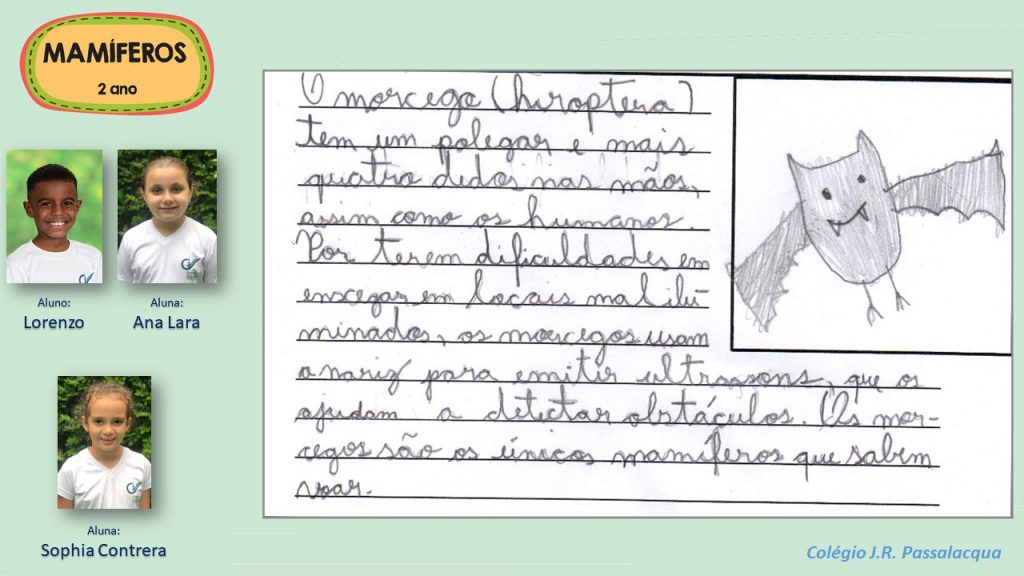 MAMÍFEROS
2 ano
Aluno:
Lorenzo
Aluna:
Ana Lara
Aluna:
Sophia Contrera
O morcego (hiroptera)
tem um polegar e mais
quatro dedos nas mãos,
assim como os humanos.
Por terem dificuldades em
enxegar em locais mal ilu-
minados, os morcegos usam
o nariz para emitir ultrasons, que os
ajudam a detectar obstáculos. Os mor-
cegos são os únicos mamíferos que sabem
voar.
Colégio J.R. Passalacqua